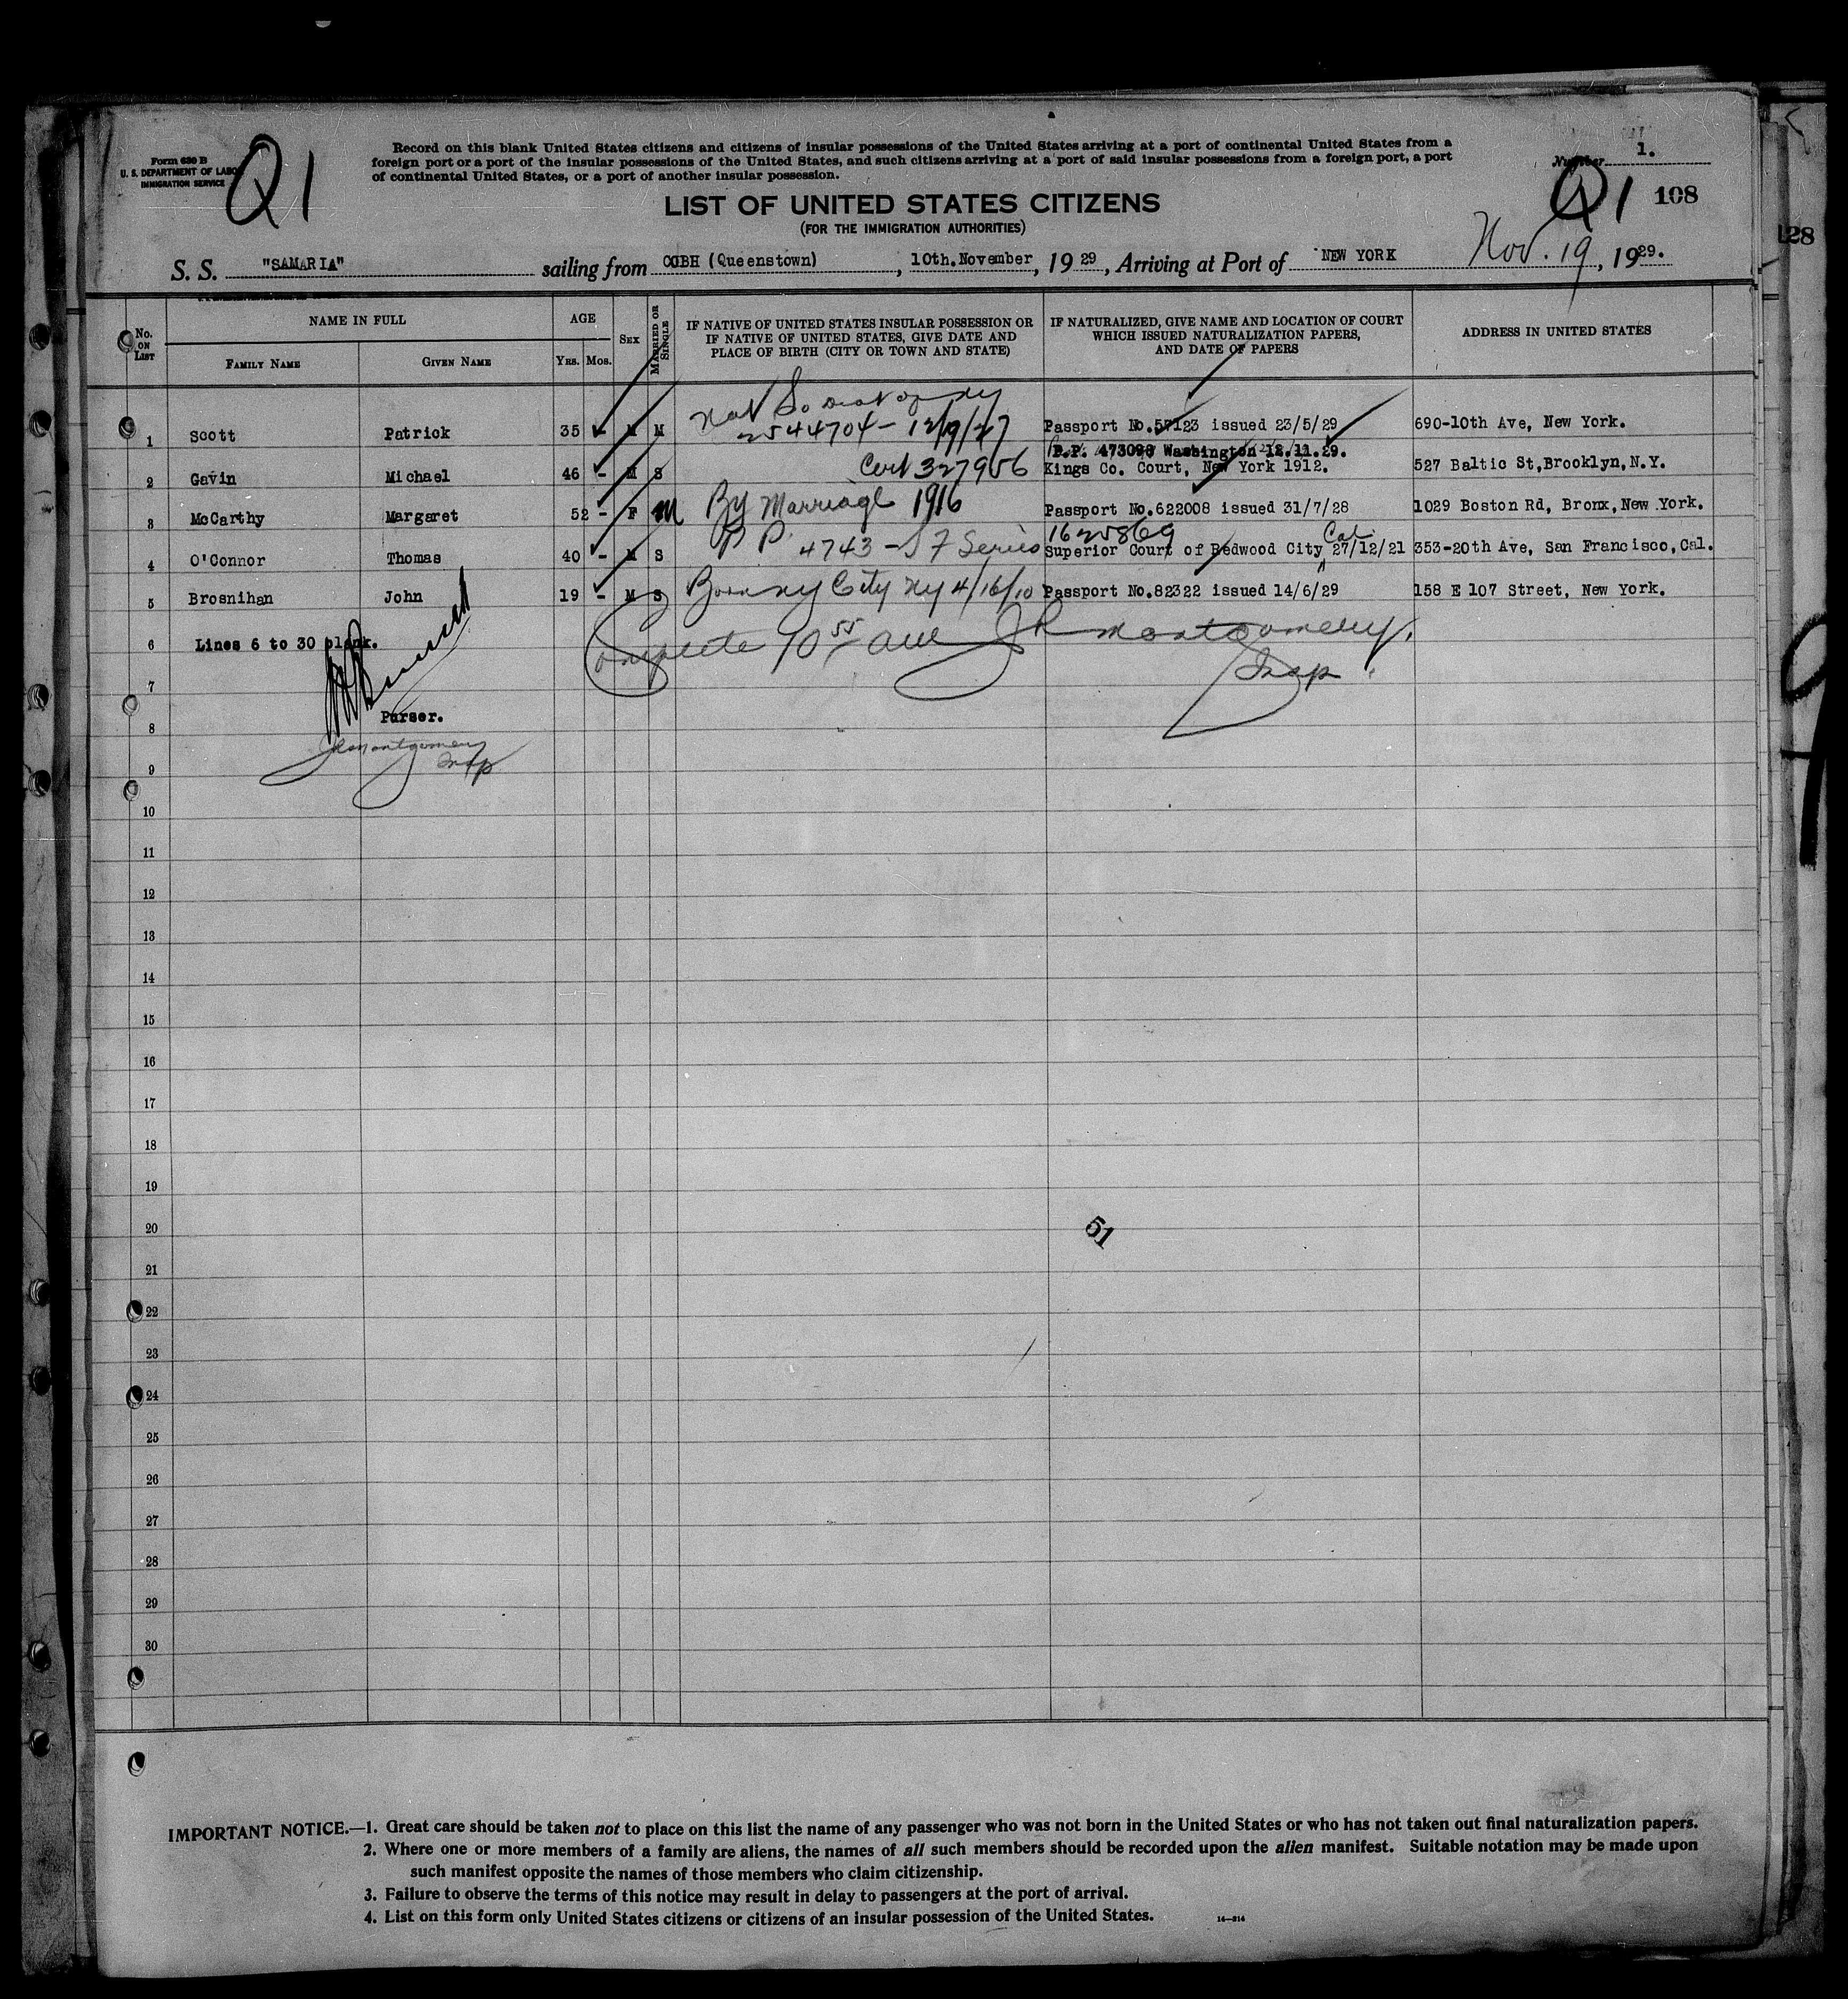 Form 630 B
U. S. DEPARTMENT OF LABOR
IMMIGRATION SERVICE
Q1
Record on this blank United States citizens and citizens of insular possessions of the United States arriving at a port of continental United States from a
foreign port or a port of the insular possessions of the United States, and such citizens arriving at a port of said insular possessions from a foreign port, a port
of continental United States, or a port of another insular possession.
Number 1.
Q1 108
LIST OF UNITED STATES CITIZENS
(FOR THE IMMIGRATION AUTHORITIES)
128
S. S. "SAMARIA" sailing from COBH (Queenstown), 10th.November, 19 29, Arriving at Port of NEW YORK Nov. 19, 1929.
No. ON LIST
NAME IN FULL
FAMILY NAME GIVEN NAME
AGE
YRS. MOS.
SEX
MARRIED OR SINGLE
IF NATIVE OF UNITED STATES INSULAR POSSESSION OR
IF NATIVE OF UNITED STATES, GIVE DATE AND
PLACE OF BIRTH (CITY OR TOWN AND STATE)
IF NATURALIZED, GIVE NAME AND LOCATION OF COURT
WHICH ISSUED NATURALIZATION PAPERS,
AND DATE OF PAPERS
ADDRESS IN UNITED STATES
Nat So Dist of NY
1 Scott Patrick 35 - M M 2544704 - 12/9/27 Passport No.57123 issued 23/5/29 690-10th Ave, New York.
P.P. 473098 Washington 12.11.29.
2 Gavin Michael 46 - M S Cert 327956 Kings Co. Court, New York 1912. 527 Baltic St,Brooklyn,N.Y.
3 McCarthy Margaret 52 - F M By Marriage 1916 Passport No.622008 issued 31/7/28 1029 Boston Rd, Bronx,New York.
1625869 Cal
4 O'Connor Thomas 40 - M S PP. 4743 - SF Series Superior Court of Redwood City 27/12/21 353-20th Ave, San Francisco,Cal.
5 Brosnihan John 19 - M S Born NY City NY 4/16/10 Passport No.82322 issued 14/6/29 158 E 107 Street, New York.
6 Lines 6 to 30 blank. Complete 10 55 AM JR Montgomery.
7 Insp.
Purser.
8
JR Montgomery
Insp
9
10
11
12
13
14
15
16
17
18
19
20
51
21
22
23
24
25
26
27
28
29
30
IMPORTANT NOTICE.—1. Great care should be taken not to place on this list the name of any passenger who was not born in the United States or who has not taken out final naturalization papers.
2. Where one or more members of a family are aliens, the names of all such members should be recorded upon the alien manifest. Suitable notation may be made upon
such manifest opposite the names of those members who claim citizenship.
3. Failure to observe the terms of this notice may result in delay to passengers at the port of arrival.
4. List on this form only United States citizens or citizens of an insular possession of the United States.
14—814